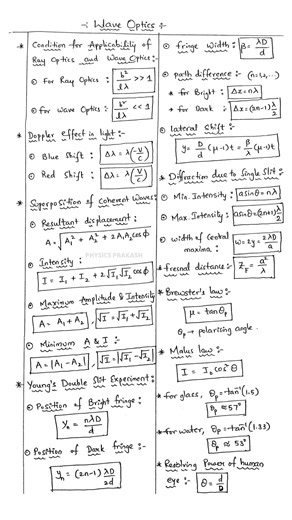 -: Wave Optics :-
* Condition for Applicability of
Ray Optics and Wave Optics :
⊙ For Ray Optics : b²/lλ >> 1
⊙ For wave Optics : b²/lλ << 1
* Doppler effect in light :-
⊙ Blue Shift : Δλ = λ(-V/C)
⊙ Red Shift : Δλ = λ(V/C)
* Superposition of Coherent Waves:
⊙ Resultant displacement :
A = √A₁² + A₂² + 2A₁A₂cosϕ
PHYSICS PRAKASH
⊙ Intensity :
I = I₁ + I₂ + 2√I₁√I₂ cosϕ
⊙ Maximum Amplitude & Intensity
A = A₁ + A₂ , √I = √I₁ + √I₂
⊙ Minimum A & I :-
A = |A₁ - A₂| , √I = |√I₁ - √I₂|
* Young's Double Slit Experiment :
⊙ Position of Bright fringe :
Yₙ = nλD/d
⊙ Position of Dark fringe :-
yₙ = (2n-1) λD/2d
⊙ fringe Width : β = λD/d
⊙ path difference :- (n=1,2,..)
* for Bright : Δx = nλ
* for Dark : Δx = (2n-1) λ/2
⊙ lateral Shift :-
y = D/d (μ-1)t = β/λ (μ-1)t
* Diffraction due to Single Slit :-
⊙ Min. Intensity : asinθ = nλ
⊙ Max Intensity : asinθ = (2n+1) λ/2
⊙ width of Central
maxima : ω = 2y = 2λD/a
* fresnel distance :- Z_F = a²/λ
* Brewster's law :-
μ = tanθₚ
θₚ → polarising angle.
* Malus law :-
I = I₀ cos²θ
* for glass, θₚ = tan⁻¹(1.5)
θₚ ≈ 57°
* for water, θₚ = tan⁻¹(1.33)
θₚ ≈ 53°
* Resolving Power of human
eye :- θ = d/D